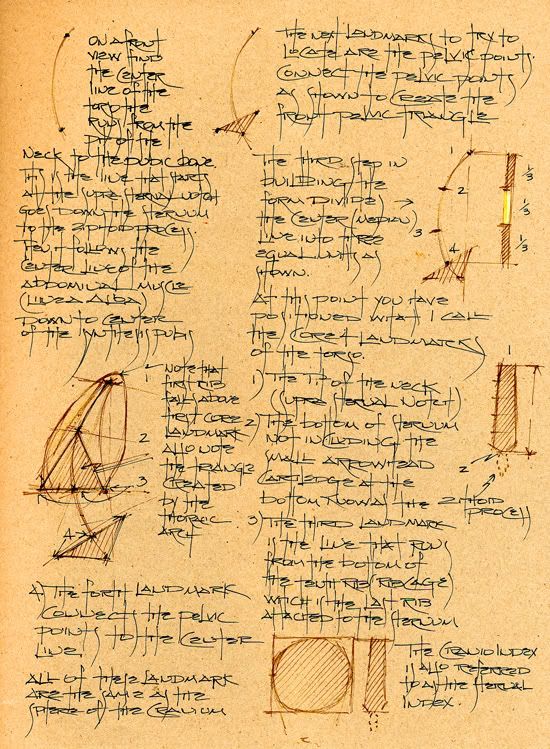 ON A FRONT
VIEW FIND
THE CENTER
LINE OF THE
TORSO THE
RUNS FROM THE
PIT OF THE
NECK TO THE PUBIC BONE.
THIS IS THE LINE THAT STARTS
AT THE SUPRA STERNAL NOTCH
GOES DOWN THE STERNUM
TO THE ZIPHOID PROCESS.
THEN IT FOLLOWS THE
CENTER LINE OF THE
ABDOMINAL MUSCLE
(LINEA ALBA)
DOWN TO CENTER
OF THE SYNTHESIS PUBIS
THE NEXT LANDMARKS TO TRY TO
LOCATE ARE THE PELVIC POINTS.
CONNECT THE PELVIC POINTS
AS SHOWN TO CREATE THE
FRONT PELVIC TRIANGLE
THE THIRD STEP IN
BUILDING THE
FORM DIVIDES →
THE CENTER (MEDIAN)
LINE INTO THREE
EQUAL UNITS AS
SHOWN.
1
2
3
4
1/3
1/3
1/3
AT THIS POINT YOU HAVE
POSITIONED WHAT I CALL
THE CORE 4 LANDMARKS
OF THE TORSO.
1) THE TIP OF THE NECK
(SUPRA STERNAL NOTCH)
2) THE BOTTOM OF STERNUM
NOT INCLUDING THE
SMALL ARROWHEAD
CARTLEDGE AT THE
BOTTOM KNOW AS THE ZIPHOID
PROCESS
3) THE THIRD LANDMARK
IS THE LINE THAT RUNS
FROM THE BOTTOM OF
THE TENTH RIB (RIBCAGE)
WHICH IS THE LAST RIB
ATTACHED TO THE STERNUM
1
2
1
2
3
4
NOTE THAT
FIRST RIB
FALLS ABOVE
FIRST CORE
LANDMARK
ALSO NOTE
THE TRIANGLE
CREATED
BY THE
THORACIC
ARCH
4) THE FORTH LANDMARK
CONNECTS THE PELVIC
POINTS TO THE CENTER
LINE.
ALL OF THESE LANDMARK
ARE THE SAME AS THE
SPHERE OF THE CRANIUM
THE CRANIO INDEX
IS ALSO REFERRED
TO AS THE STERNAL
INDEX.